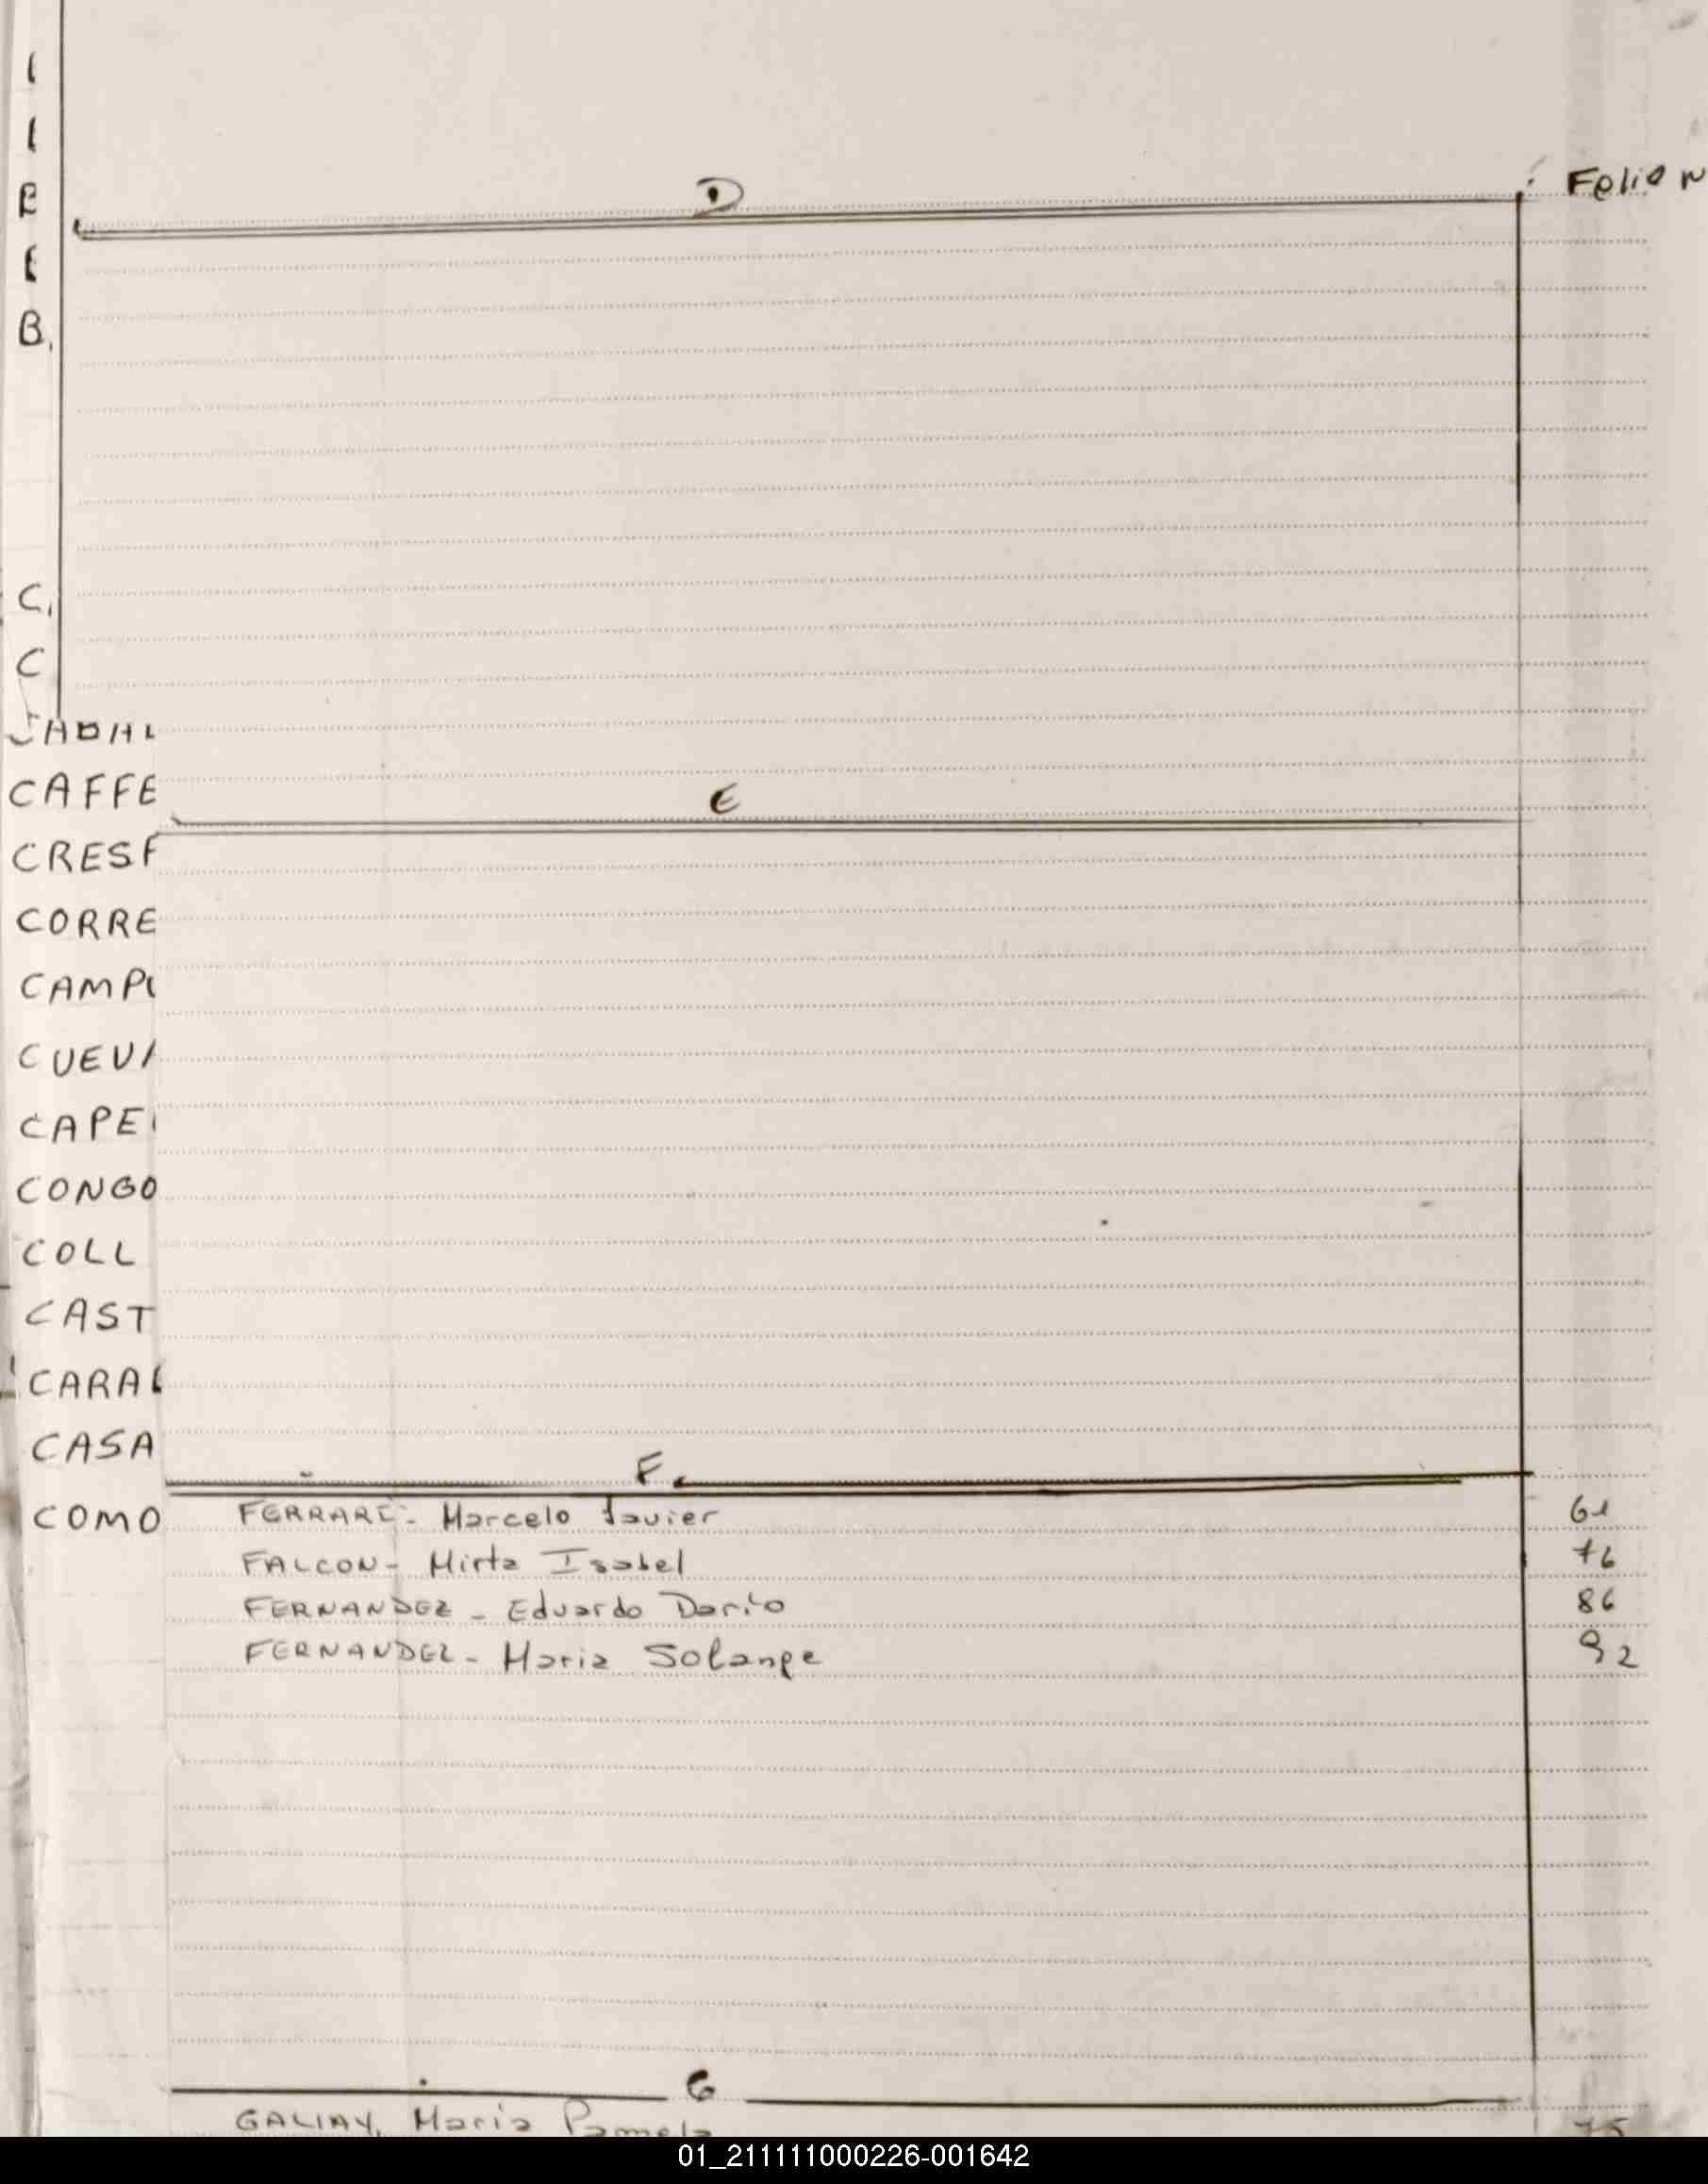 D Folio N
E
F
FERRARI- Marcelo Javier 61
FALCON- Mirta Isabel 76
FERNANDEZ - Eduardo Darío 86
FERNANDEZ- Maria Solange 92
G
GALIAY, Maria Pamela 75
B
C
C
CAFFE
CRESP
CORRE
CAMPO
CUEVA
CAPE
CONGO
COLL
CAST
CARAB
CASA
COMO
01_211111000226-001642